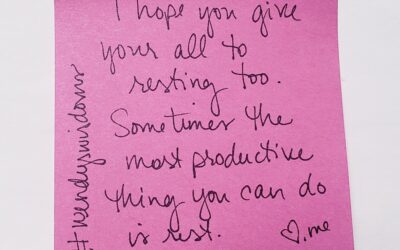 I hope you give
your all to
resting too.
Sometimes the
most productive
thing you can do
is rest. ♡, me
#wendyswisdoms